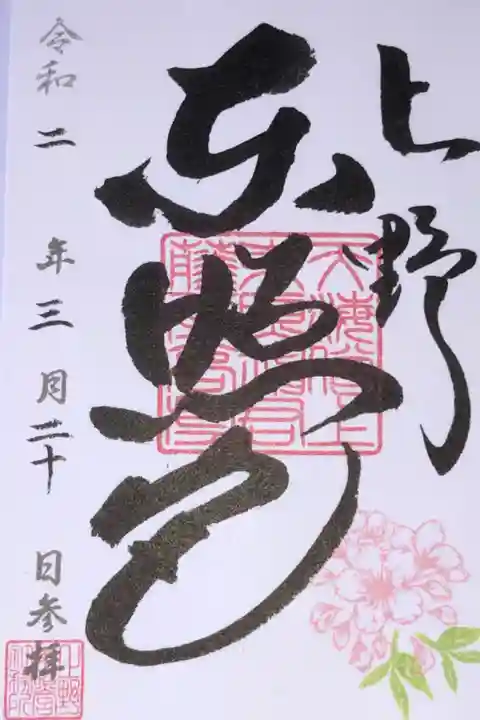 上野
東照宮
令和二年三月二十日参拝